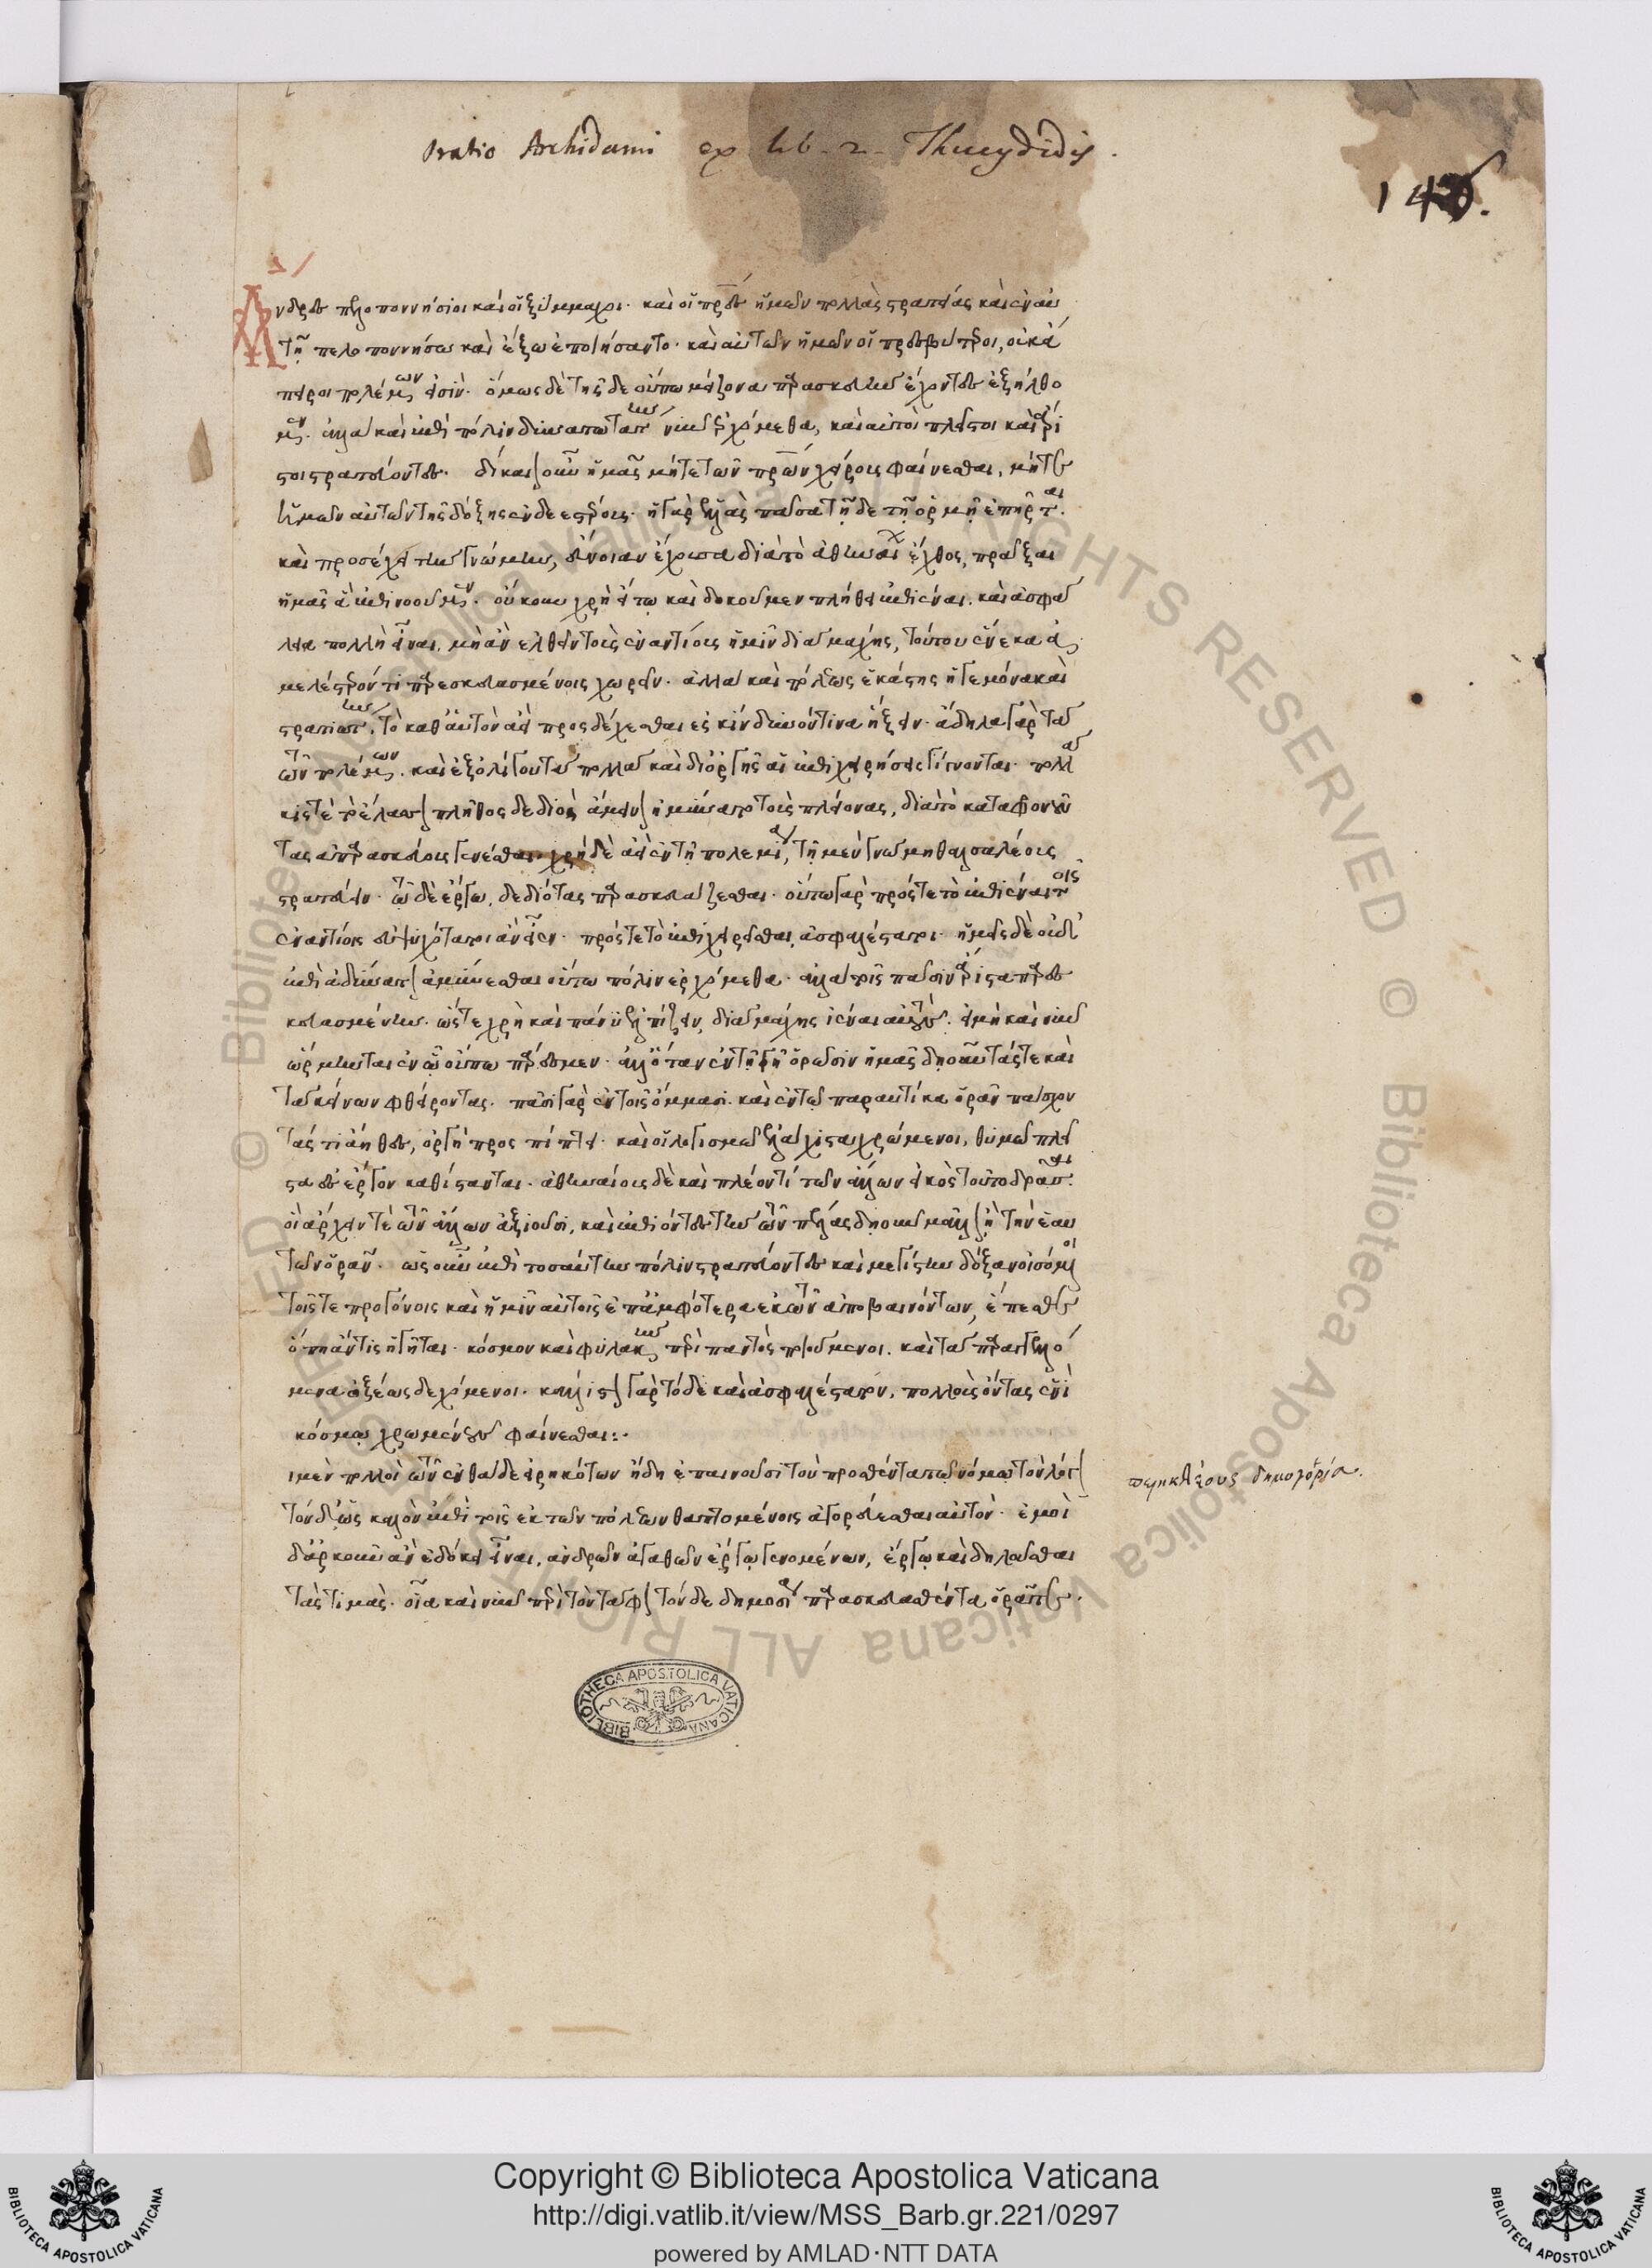 Oratio Archidami ex lib. 2. Thucydidis.
145.
Ἄνδρες πελοποννήσιοι καὶ οἱ ξύμμαχοι. καὶ οἱ πατέρες ἡμῶν πολλὰς στρατείας καὶ ἐν αὐ
τῇ πελοποννήσω καὶ ἔξω ἐποιήσαντο. καὶ αὐτῶν ἡμῶν οἱ πρεσβύτεροι, οὐκ ἄ
πειροι πολέμων εἰσίν. ὅμως δὲ τῆσδε οὔπω μείζονα παρασκευὴν ἔχοντες ἐξήλθο
μεν. ἀλλὰ καὶ ἐπὶ πόλιν δυνατωτάτην νῦν ἐρχόμεθα, καὶ αὐτοὶ πλεῖστοι καὶ ἄρι
στοι στρατεύοντες. δίκαιον οὖν ἡμᾶς μήτε τῶν πατέρων χείροις φαίνεσθαι, μήτε
ἡμῶν αὐτῶν τῆς δόξης ἐνδεεστέρους. ἡ γὰρ ἑλλὰς πᾶσα τῇδε τῇ ὁρμῇ ἐπῆρται.
καὶ προσέχει τὴν γνώμην, εὔνοιαν ἔχουσα διὰ τὸ ἀθηναίων ἔχθος, πρᾶξαι
ἡμᾶς ἃ ἐπινοοῦμεν. οὔκουν χρὴ εἴ τω καὶ δοκοῦμεν πλήθει ἐπιέναι. καὶ ἀσφά
λεια πολλὴ εἶναι, μὴ ἂν ἐλθεῖν τοὺς ἐναντίους ἡμῖν διὰ μάχης, τούτου ἕνεκα ἀ
μελέστερόν τι παρεσκευασμένους χωρεῖν. ἀλλὰ καὶ πόλεως ἑκάστης ἡγεμόνα καὶ
στρατιώτην, τὸ καθ' αὑτὸν ἀεὶ προσδέχεσθαι ἐς κίνδυνόν τινα ἥξειν. ἄδηλα γὰρ τὰ
τῶν πολέμων. καὶ ἐξ ὀλίγου τὰ πολλὰ καὶ δι' ὀργῆς αἱ ἐπιχειρήσεις γίγνονται. πολλά
κις τὲ τὸ ἔλασσον πλῆθος δεδιὸς ἄμεινον ἠμύνατο τοὺς πλείονας, διὰ τὸ καταφρονοῦν
τας ἀπαρασκεύους γενέσθαι. χρὴ δὲ ἀεὶ ἐν τῇ πολεμίᾳ, τῇ μὲν γνώμη θαρσαλέους
στρατεύειν. τῷ δὲ ἔργω, δεδιότας παρασκευάζεσθαι. οὕτω γὰρ πρός τε τὸ ἐπιέναι τοῖς
ἐναντίοις εὐψυχότατοι ἂν εἶεν. πρός τε τὸ ἐπιχειρεῖσθαι, ἀσφαλέστατοι. ἡμεῖς δὲ οὐδ'
ἐπὶ ἀδύνατον ἀμύνεσθαι οὕτω πόλιν ἐρχόμεθα. ἀλλὰ τοῖς πᾶσιν ἄριστα παρε
σκευασμένην. ὥστε χρὴ καὶ πάνυ ἐλπίζειν, διὰ μάχης ἰέναι αὐτούς. εἰ μὴ καὶ νῦν
ὥρμηνται ἐν ᾧ οὔπω πάρεσμεν. ἀλλ' ὅταν ἐν τῇ γῇ ὁρῶσιν ἡμᾶς δῃοῦντάς τε καὶ
τἀκείνων φθείροντας. πᾶσι γὰρ ἐν τοῖς ὄμμασι. καὶ ἐν τῷ παραυτίκα ὁρᾶν πάσχον
τάς τι ἄηθες, ὀργὴ προσπίπτει. καὶ οἱ λογισμῷ ἐλάχιστα χρώμενοι, θυμῷ πλεῖ
στα ἐς ἔργον καθίστανται. ἀθηναίους δὲ καὶ πλέον τι τῶν ἄλλων εἰκὸς τοῦτο δρᾶσαι.
οἳ ἄρχειν τὲ τῶν ἄλλων ἀξιοῦσι, καὶ ἐπιόντες τὴν τῶν πέλας δῃοῦν μᾶλλον ἢ τὴν ἑαυ
τῶν ὁρᾶν. ὡς οὖν ἐπὶ τοσαύτην πόλιν στρατεύοντες καὶ μεγίστην δόξαν οἰσόμενοι
τοῖς τε προγόνοις καὶ ἡμῖν αὐτοῖς ἐπ' ἀμφότερα ἐκ τῶν ἀποβαινόντων, ἕπεσθε
ὅπη ἄν τις ἡγῆται. κόσμον καὶ φυλακὴν περὶ παντὸς ποιούμενοι. καὶ τὰ παραγγελλό
μενα ὀξέως δεχόμενοι. κάλλιστον γὰρ τόδε καὶ ἀσφαλέστατον, πολλοὺς ὄντας ἑνὶ
κόσμω χρωμένους φαίνεσθαι:.
ι μὲν πολλοὶ τῶν ἐνθάδε εἰρηκότων ἤδη ἐπαινοῦσι τὸν προσθέντα τῷ νόμω τὸν λόγον
τόνδε, ὡς καλὸν ἐπὶ τοῖς ἐκ τῶν πολέμων θαπτομένοις ἀγορεύεσθαι αὐτόν. ἐμοὶ
δ' ἀρκοῦν ἂν ἐδόκει εἶναι, ἀνδρῶν ἀγαθῶν ἔργω γενομένων, ἔργω καὶ δηλοῦσθαι
τὰς τιμάς. οἷα καὶ νῦν περὶ τὸν τάφον τόνδε δημοσίᾳ παρασκευασθέντα ὁρᾶτε.
περικλέους δημηγορία.
BIBLIOTHECA APOSTOLICA VATICANA
Copyright © Biblioteca Apostolica Vaticana
http://digi.vatlib.it/view/MSS_Barb.gr.221/0297
powered by AMLAD·NTT DATA